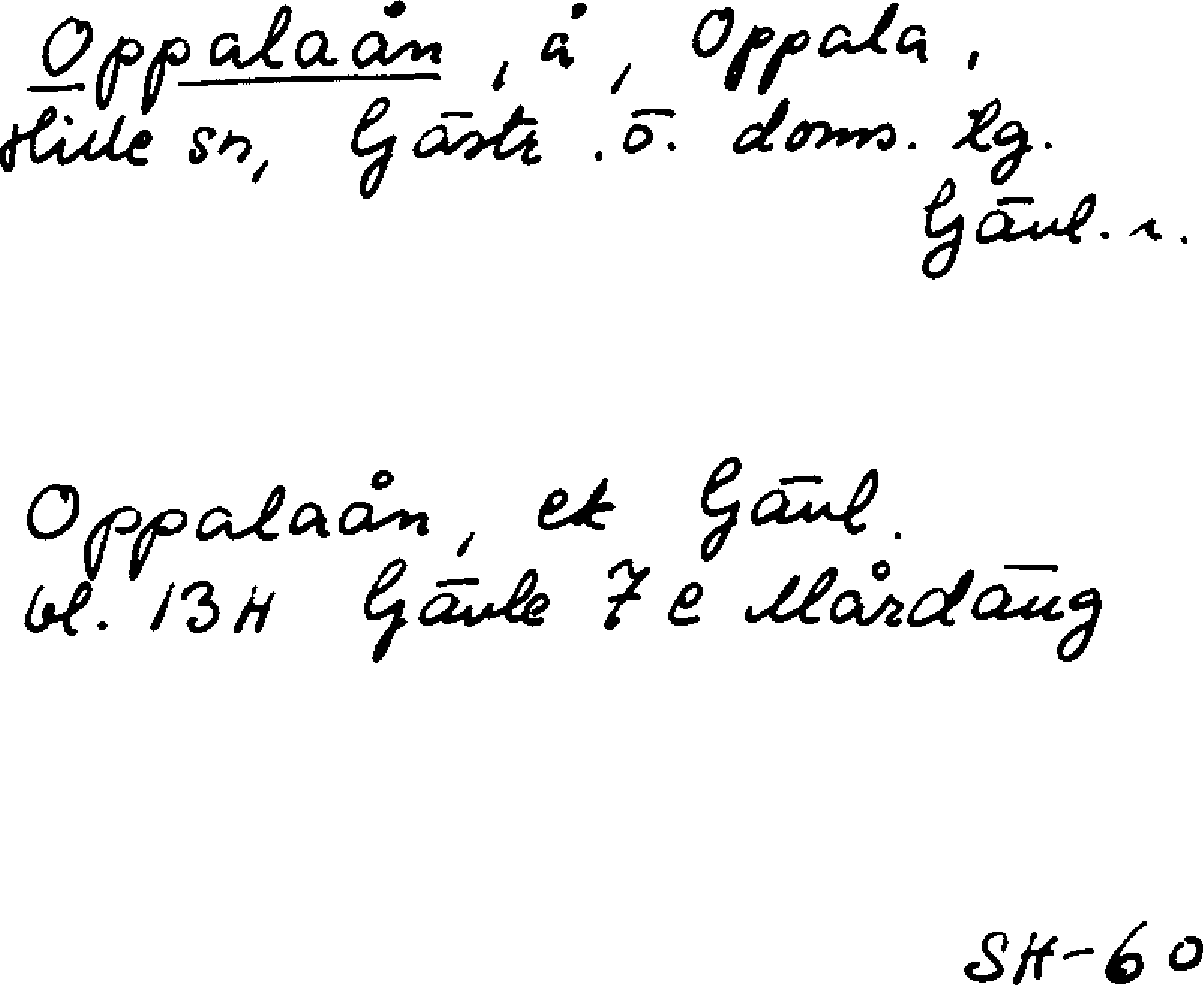 Oppalaån, å, Oppala,
Hille sn, Gästr. ö. doms. tg.
Gävl. r.
Oppalaån, ek Gävl.
bl. 13H Gävle 7 e Mårdäng
SH-60